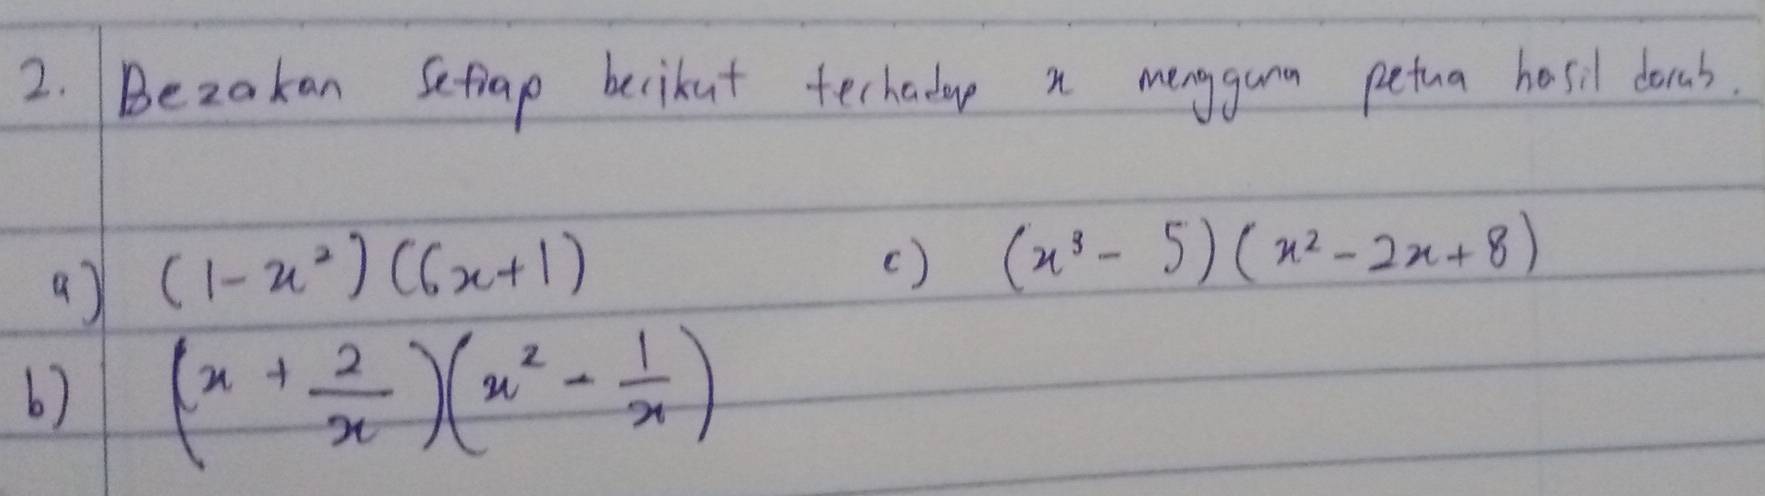 2. Bezakan setiap berikut terhadap x mengguna petua hasil darab.
a) (1-x²)(6x+1) c) (x³- 5)(x²-2x+8)
b) (x + 2/x)(x² - 1/x)